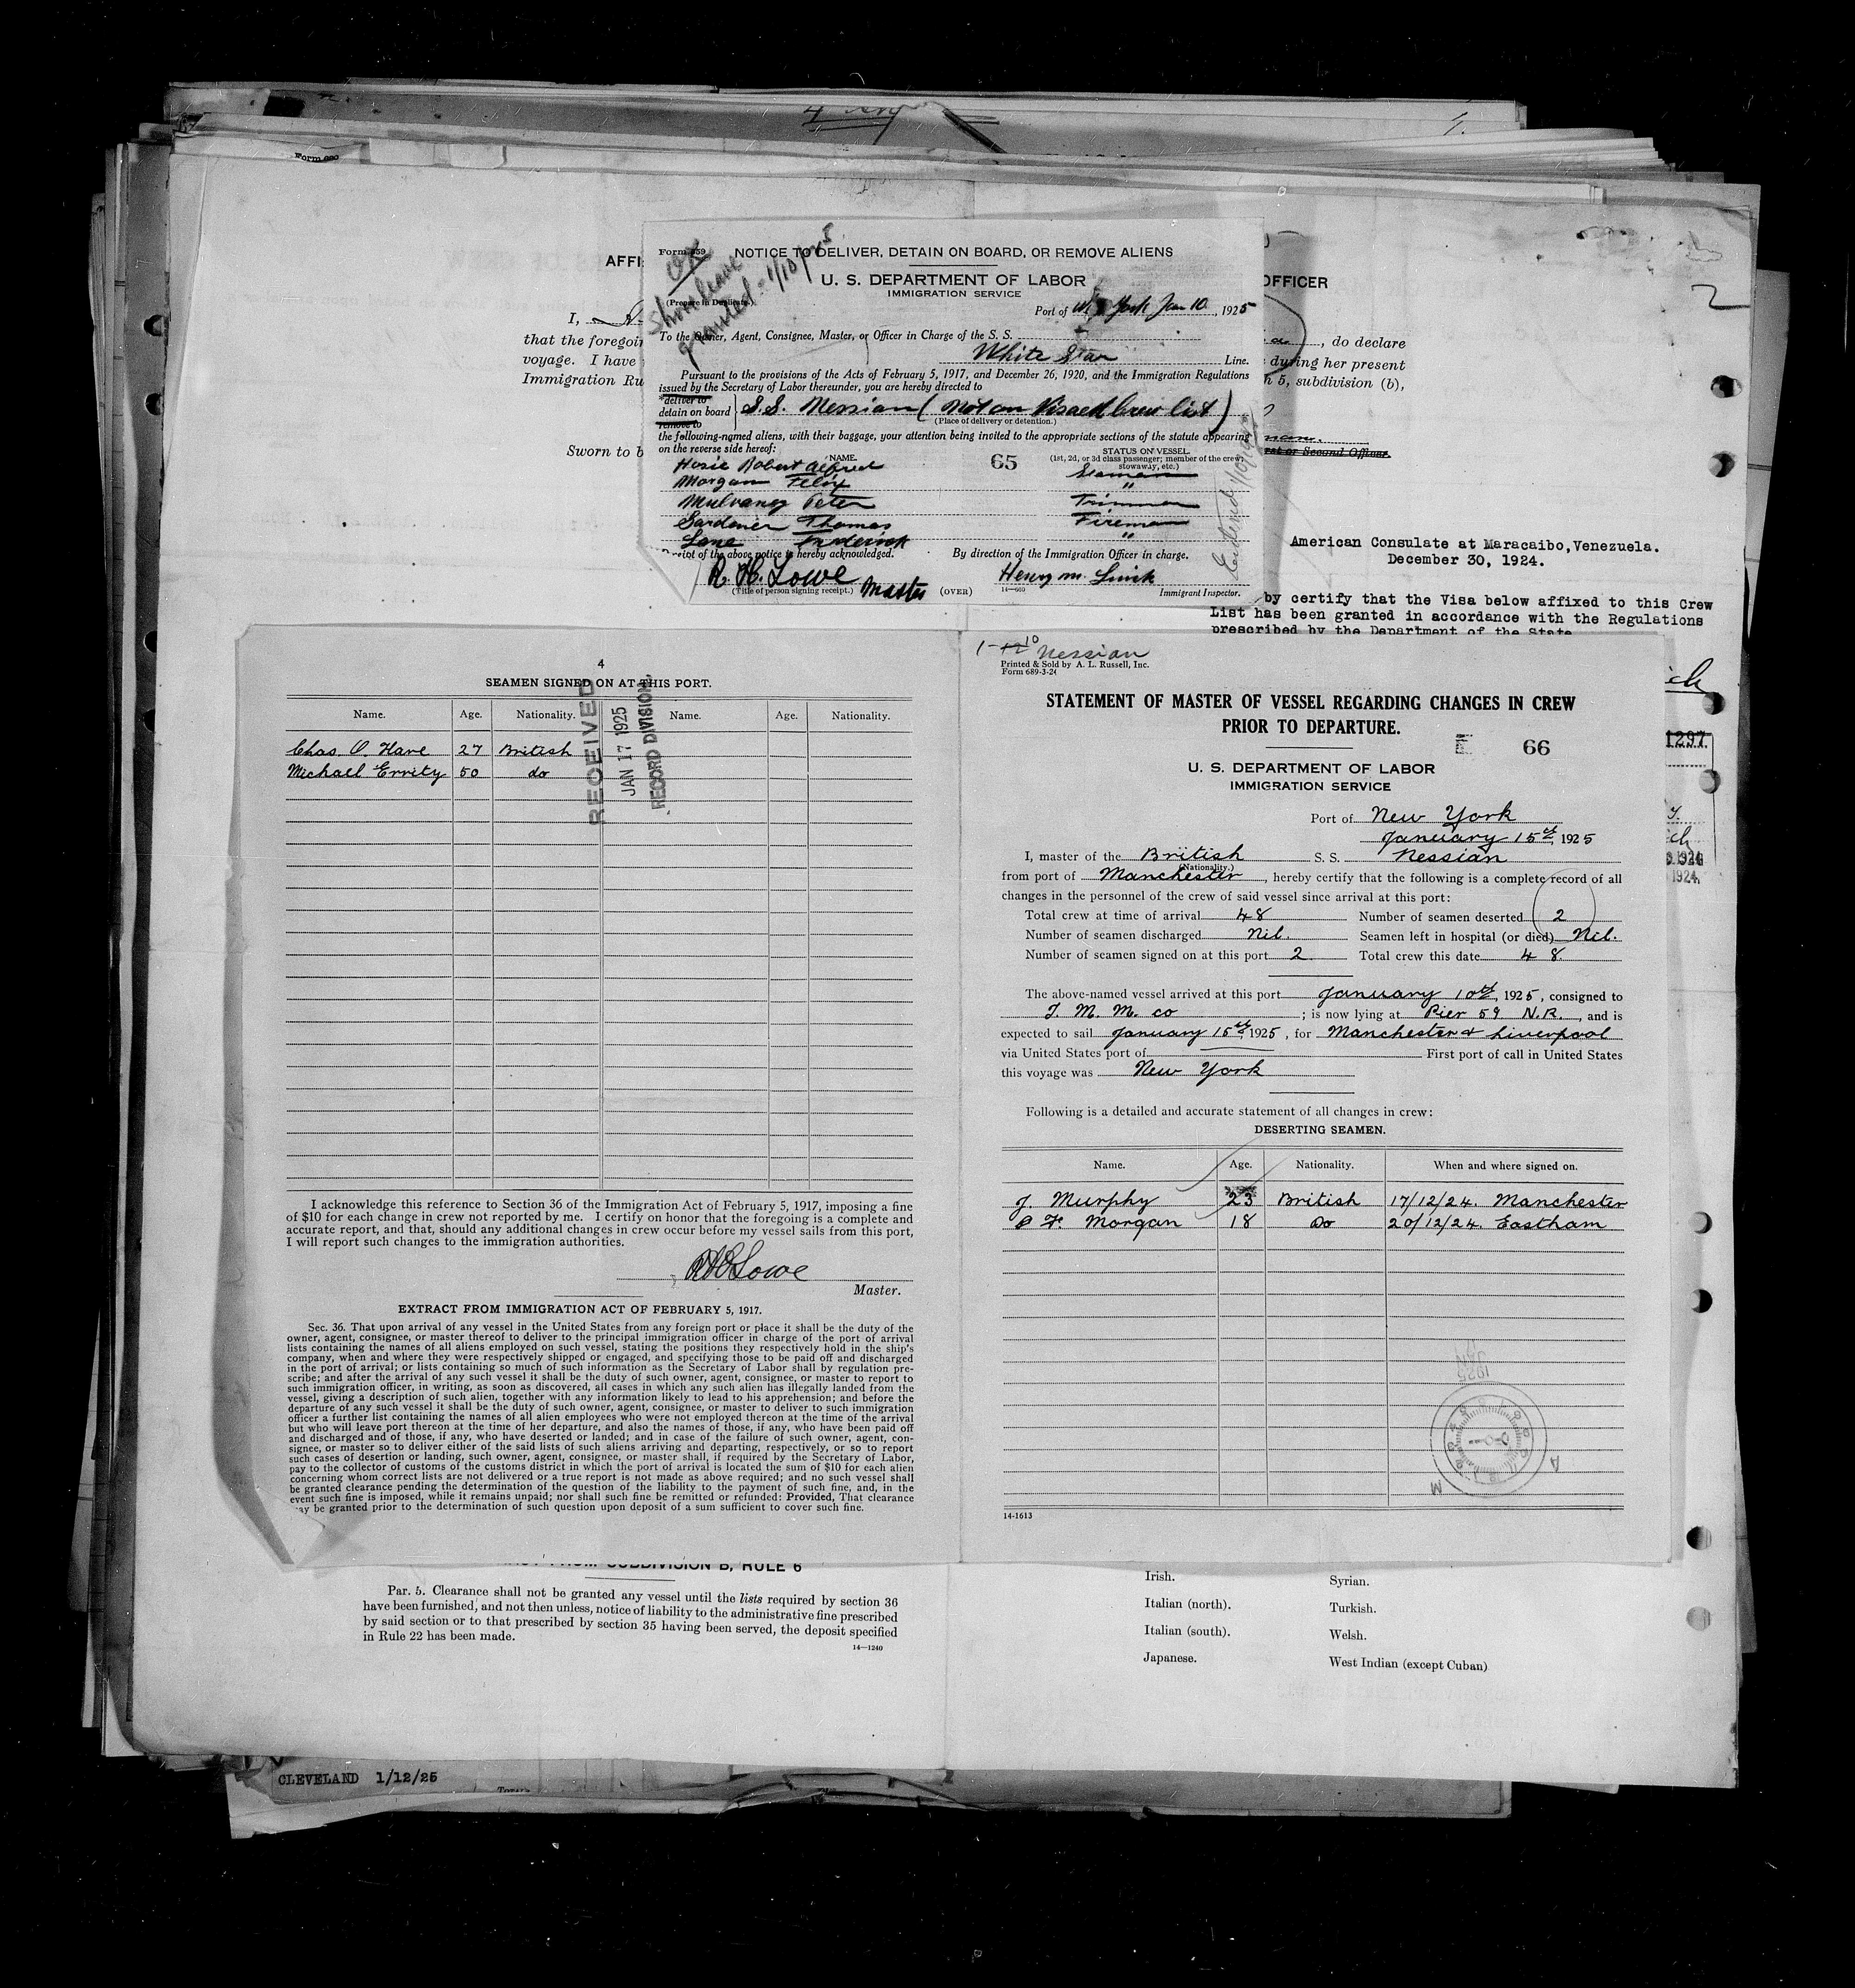 Form 689
NOTICE TO DELIVER, DETAIN ON BOARD, OR REMOVE ALIENS
OK
Shore leave
granted 1/10/25
U. S. DEPARTMENT OF LABOR
IMMIGRATION SERVICE
(Prepare in Duplicate.)
Port of N. York Jan 10, 1925
To the Owner, Agent, Consignee, Master, or Officer in Charge of the S. S.
White Star Line.
Pursuant to the provisions of the Acts of February 5, 1917, and December 26, 1920, and the Immigration Regulations
issued by the Secretary of Labor thereunder, you are hereby directed to
*deliver to
detain on board S.S. Nessian (Not on Visaed Crew list)
remove to
(Place of delivery or detention.)
the following-named aliens, with their baggage, your attention being invited to the appropriate sections of the statute appearing
on the reverse side hereof:
NAME. 65 STATUS ON VESSEL
(1st, 2d, or 3d class passenger; member of the crew, stowaway, etc.)
Hosie Robert Alfred Seaman
Morgan Felix "
Mulvaney Peter Trimmer
Gardener Thomas Fireman
Lane Frederick "
Receipt of the above notice is hereby acknowledged. By direction of the Immigration Officer in charge.
R. H. Lowe Master Henry M.
(Title of person signing receipt.) (OVER) 14—660 Immigrant Inspector.
AFFI
OFFICER
I,
, do declare
that the foregoin
voyage. I have
during her present
Immigration Ru
h 5, subdivision (b),
Sworn to b
rst or Second Officer.
American Consulate at Maracaibo, Venezuela.
December 30, 1924.
by certify that the Visa below affixed to this Crew
List has been granted in accordance with the Regulations
prescribed by the Department of the State
1297
1924
1924,
4
SEAMEN SIGNED ON AT THIS PORT.
Name. Age. Nationality. Name. Age. Nationality.
Chas. O Hare 27 British
Michael Errity 50 do
RECEIVED
JAN 17 1925
RECORD DIVISION,
I acknowledge this reference to Section 36 of the Immigration Act of February 5, 1917, imposing a fine
of $10 for each change in crew not reported by me. I certify on honor that the foregoing is a complete and
accurate report, and that, should any additional changes in crew occur before my vessel sails from this port,
I will report such changes to the immigration authorities.
RH Lowe
Master.
EXTRACT FROM IMMIGRATION ACT OF FEBRUARY 5, 1917.
Sec. 36. That upon arrival of any vessel in the United States from any foreign port or place it shall be the duty of the
owner, agent, consignee, or master thereof to deliver to the principal immigration officer in charge of the port of arrival
lists containing the names of all aliens employed on such vessel, stating the positions they respectively hold in the ship's
company, when and where they were respectively shipped or engaged, and specifying those to be paid off and discharged
in the port of arrival; or lists containing so much of such information as the Secretary of Labor shall by regulation pre-
scribe; and after the arrival of any such vessel it shall be the duty of such owner, agent, consignee, or master to report to
such immigration officer, in writing, as soon as discovered, all cases in which any such alien has illegally landed from the
vessel, giving a description of such alien, together with any information likely to lead to his apprehension; and before the
departure of any such vessel it shall be the duty of such owner, agent, consignee, or master to deliver to such immigration
officer a further list containing the names of all alien employees who were not employed thereon at the time of the arrival
but who will leave port thereon at the time of her departure, and also the names of those, if any, who have been paid off
and discharged and of those, if any, who have deserted or landed; and in case of the failure of such owner, agent, con-
signee, or master so to deliver either of the said lists of such aliens arriving and departing, respectively, or so to report
such cases of desertion or landing, such owner, agent, consignee, or master shall, if required by the Secretary of Labor,
pay to the collector of customs of the customs district in which the port of arrival is located the sum of $10 for each alien
concerning whom correct lists are not delivered or a true report is not made as above required; and no such vessel shall
be granted clearance pending the determination of the question of the liability to the payment of such fine, and, in the
event such fine is imposed, while it remains unpaid; nor shall such fine be remitted or refunded: Provided, That clearance
may be granted prior to the determination of such question upon deposit of a sum sufficient to cover such fine.
1-10 Nessian
Printed & Sold by A. L. Russell, Inc.
Form 689-3-24
STATEMENT OF MASTER OF VESSEL REGARDING CHANGES IN CREW
PRIOR TO DEPARTURE.
66
U. S. DEPARTMENT OF LABOR
IMMIGRATION SERVICE
Port of New York
January 15th, 1925
I, master of the British S. S. Nessian
(Nationality.)
from port of Manchester, hereby certify that the following is a complete record of all
changes in the personnel of the crew of said vessel since arrival at this port:
Total crew at time of arrival 48 Number of seamen deserted 2
Number of seamen discharged Nil. Seamen left in hospital (or died) Nil.
Number of seamen signed on at this port 2 Total crew this date 48.
The above-named vessel arrived at this port January 10th, 1925, consigned to
I. M. M. co ; is now lying at Pier 59 N.R., and is
expected to sail January 15th, 1925, for Manchester & Liverpool
via United States port of First port of call in United States
this voyage was New York
Following is a detailed and accurate statement of all changes in crew:
DESERTING SEAMEN.
Name. Age. Nationality. When and where signed on.
J. Murphy 23 British 17/12/24. Manchester
F. Morgan 18 Do 20/12/24. Eastham
JAN
1925
14-1613
SUBDIVISION B, RULE 6
Par. 5. Clearance shall not be granted any vessel until the lists required by section 36
have been furnished, and not then unless, notice of liability to the administrative fine prescribed
by said section or to that prescribed by section 35 having been served, the deposit specified
in Rule 22 has been made.
14—1240
Irish. Syrian.
Italian (north). Turkish.
Italian (south). Welsh.
Japanese. West Indian (except Cuban)
CLEVELAND 1/12/25